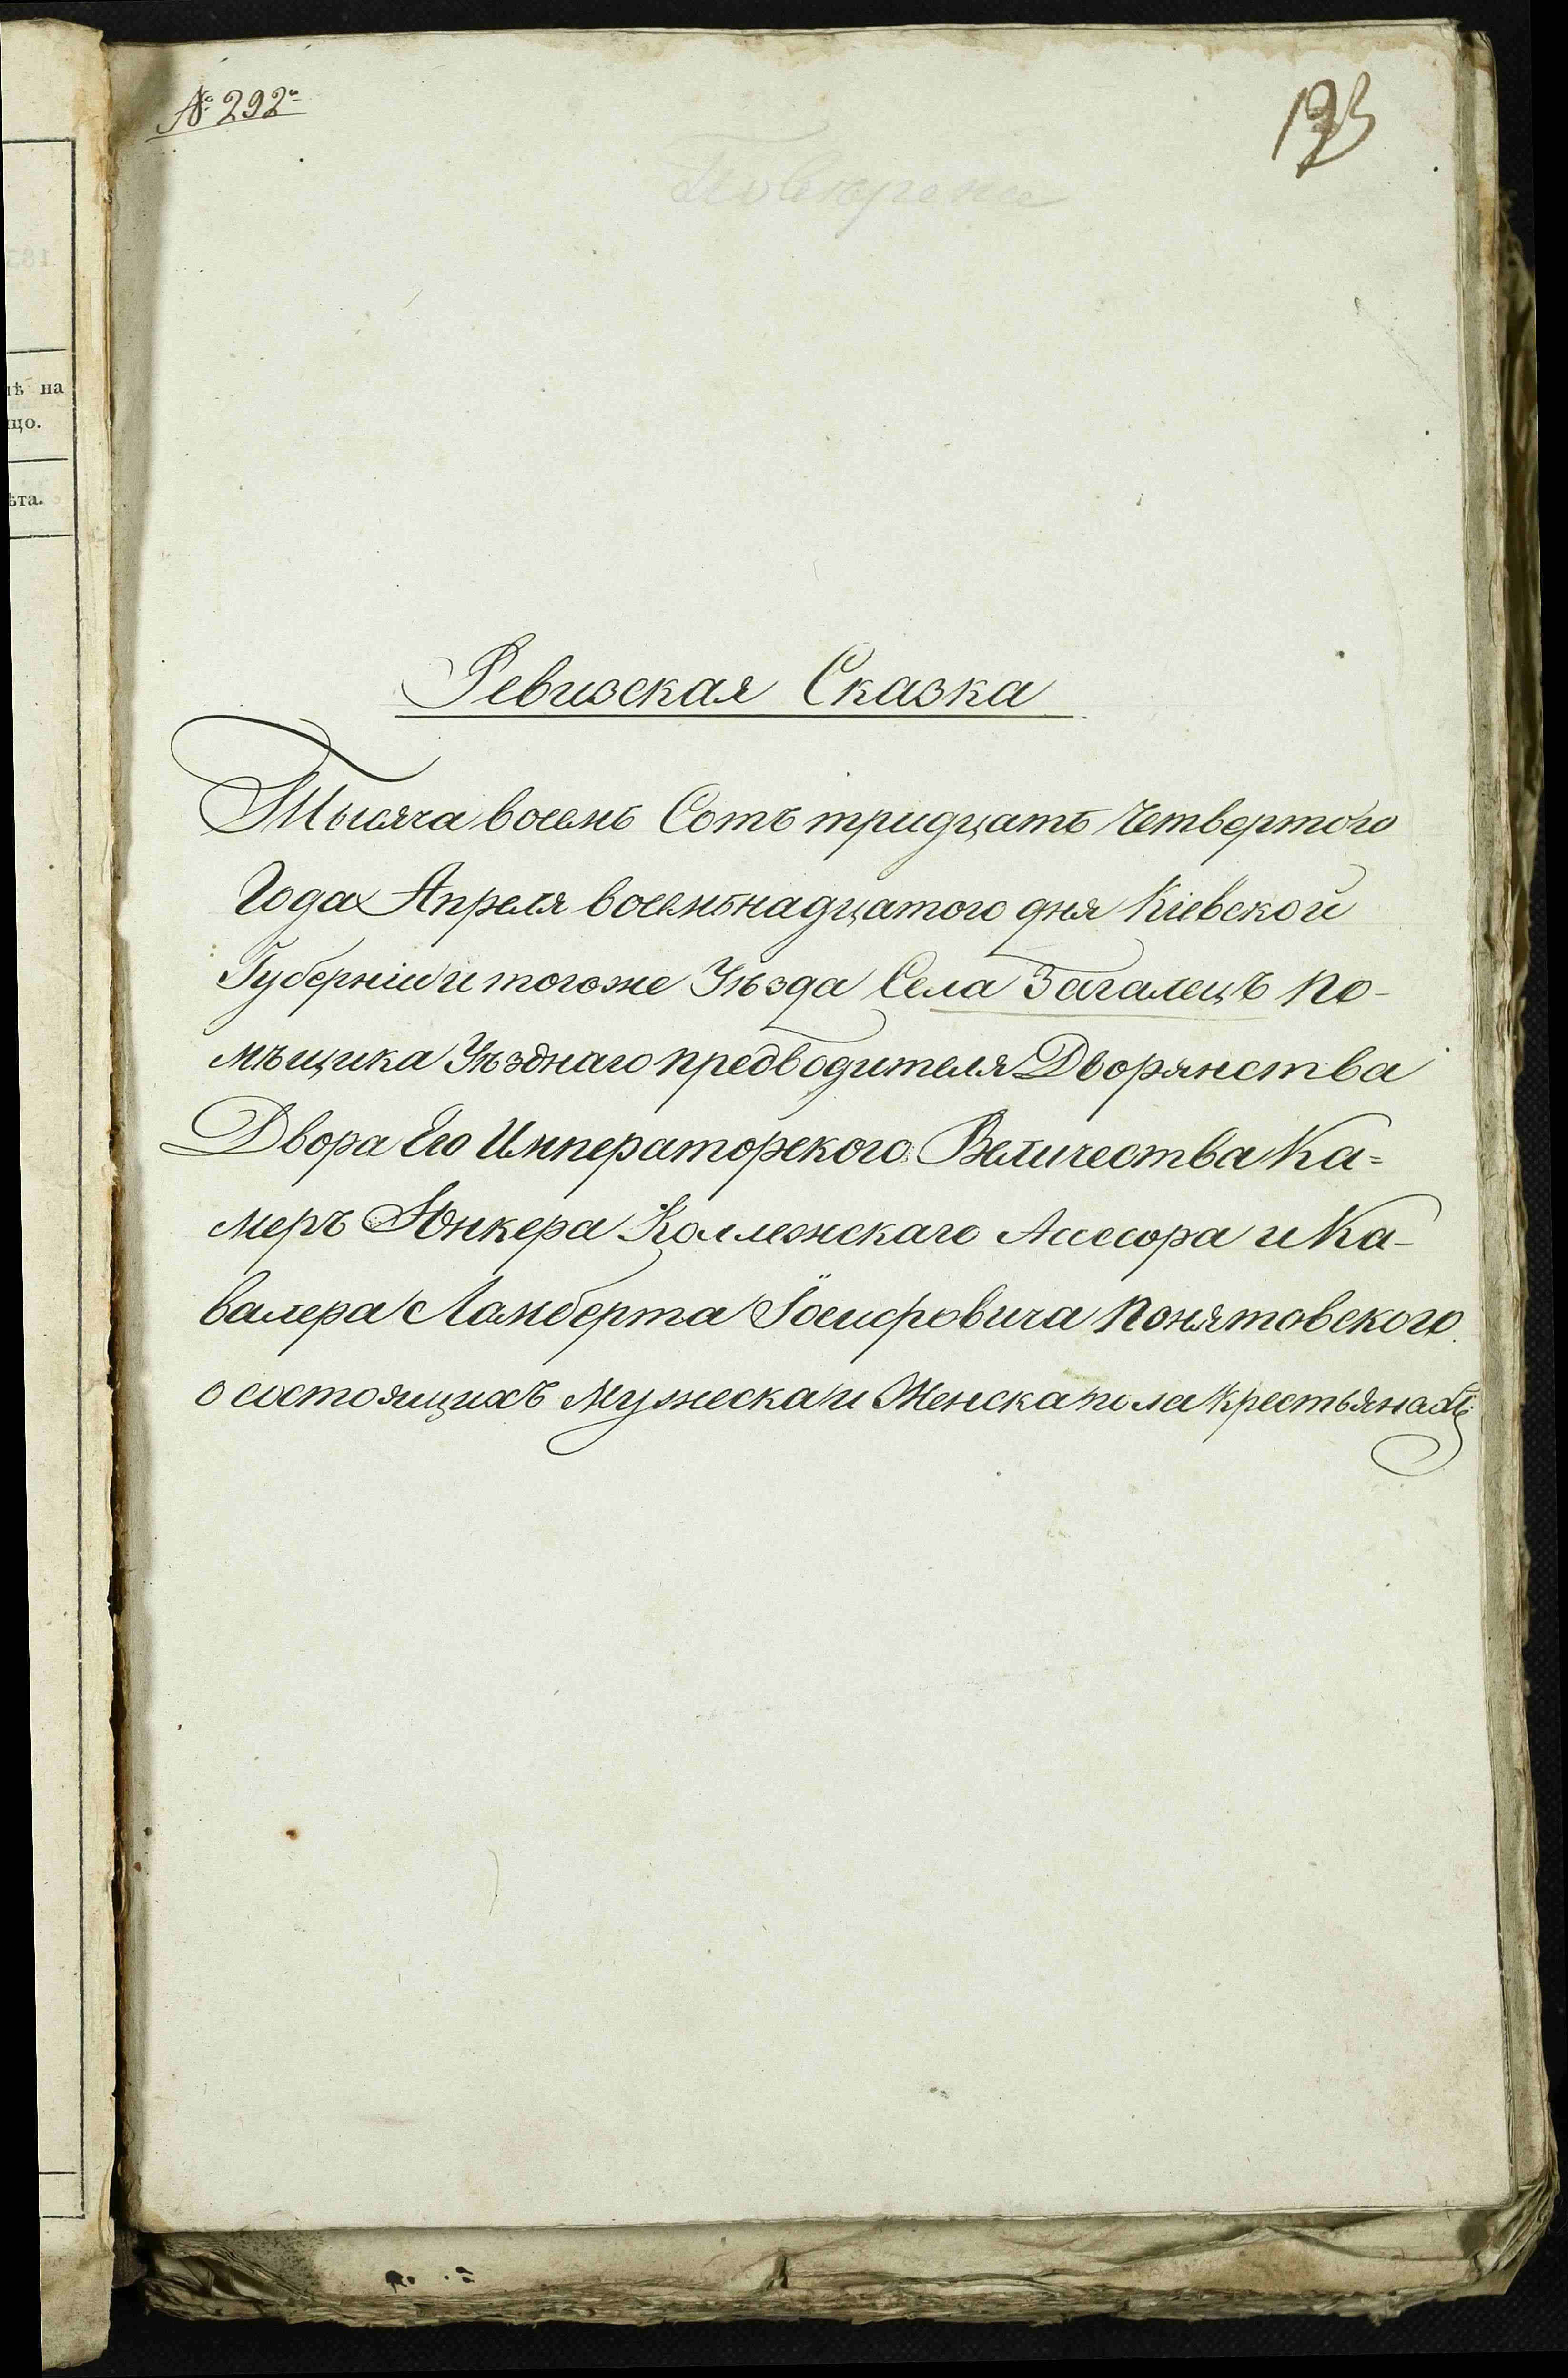 № 292й
Ревизская Сказка
Тысяча восемь Сотъ тридцать Четвертого
Года Апреля восемьнадцатого дня Кіевской
Губерніи и тогоже Уѣзда Села Загалецъ по-
мѣщика Уѣзднаго предводителя Дворянства
Двора Его Императорского Величества Ка=
меръ Юнкера Коллежскаго Ассесора и Ка-
валера Ламберта Іосифовича Понятовского
о состоящихъ Мужеска и Женска пола крестьянахъ
нѣ на
цо.
ѣта.